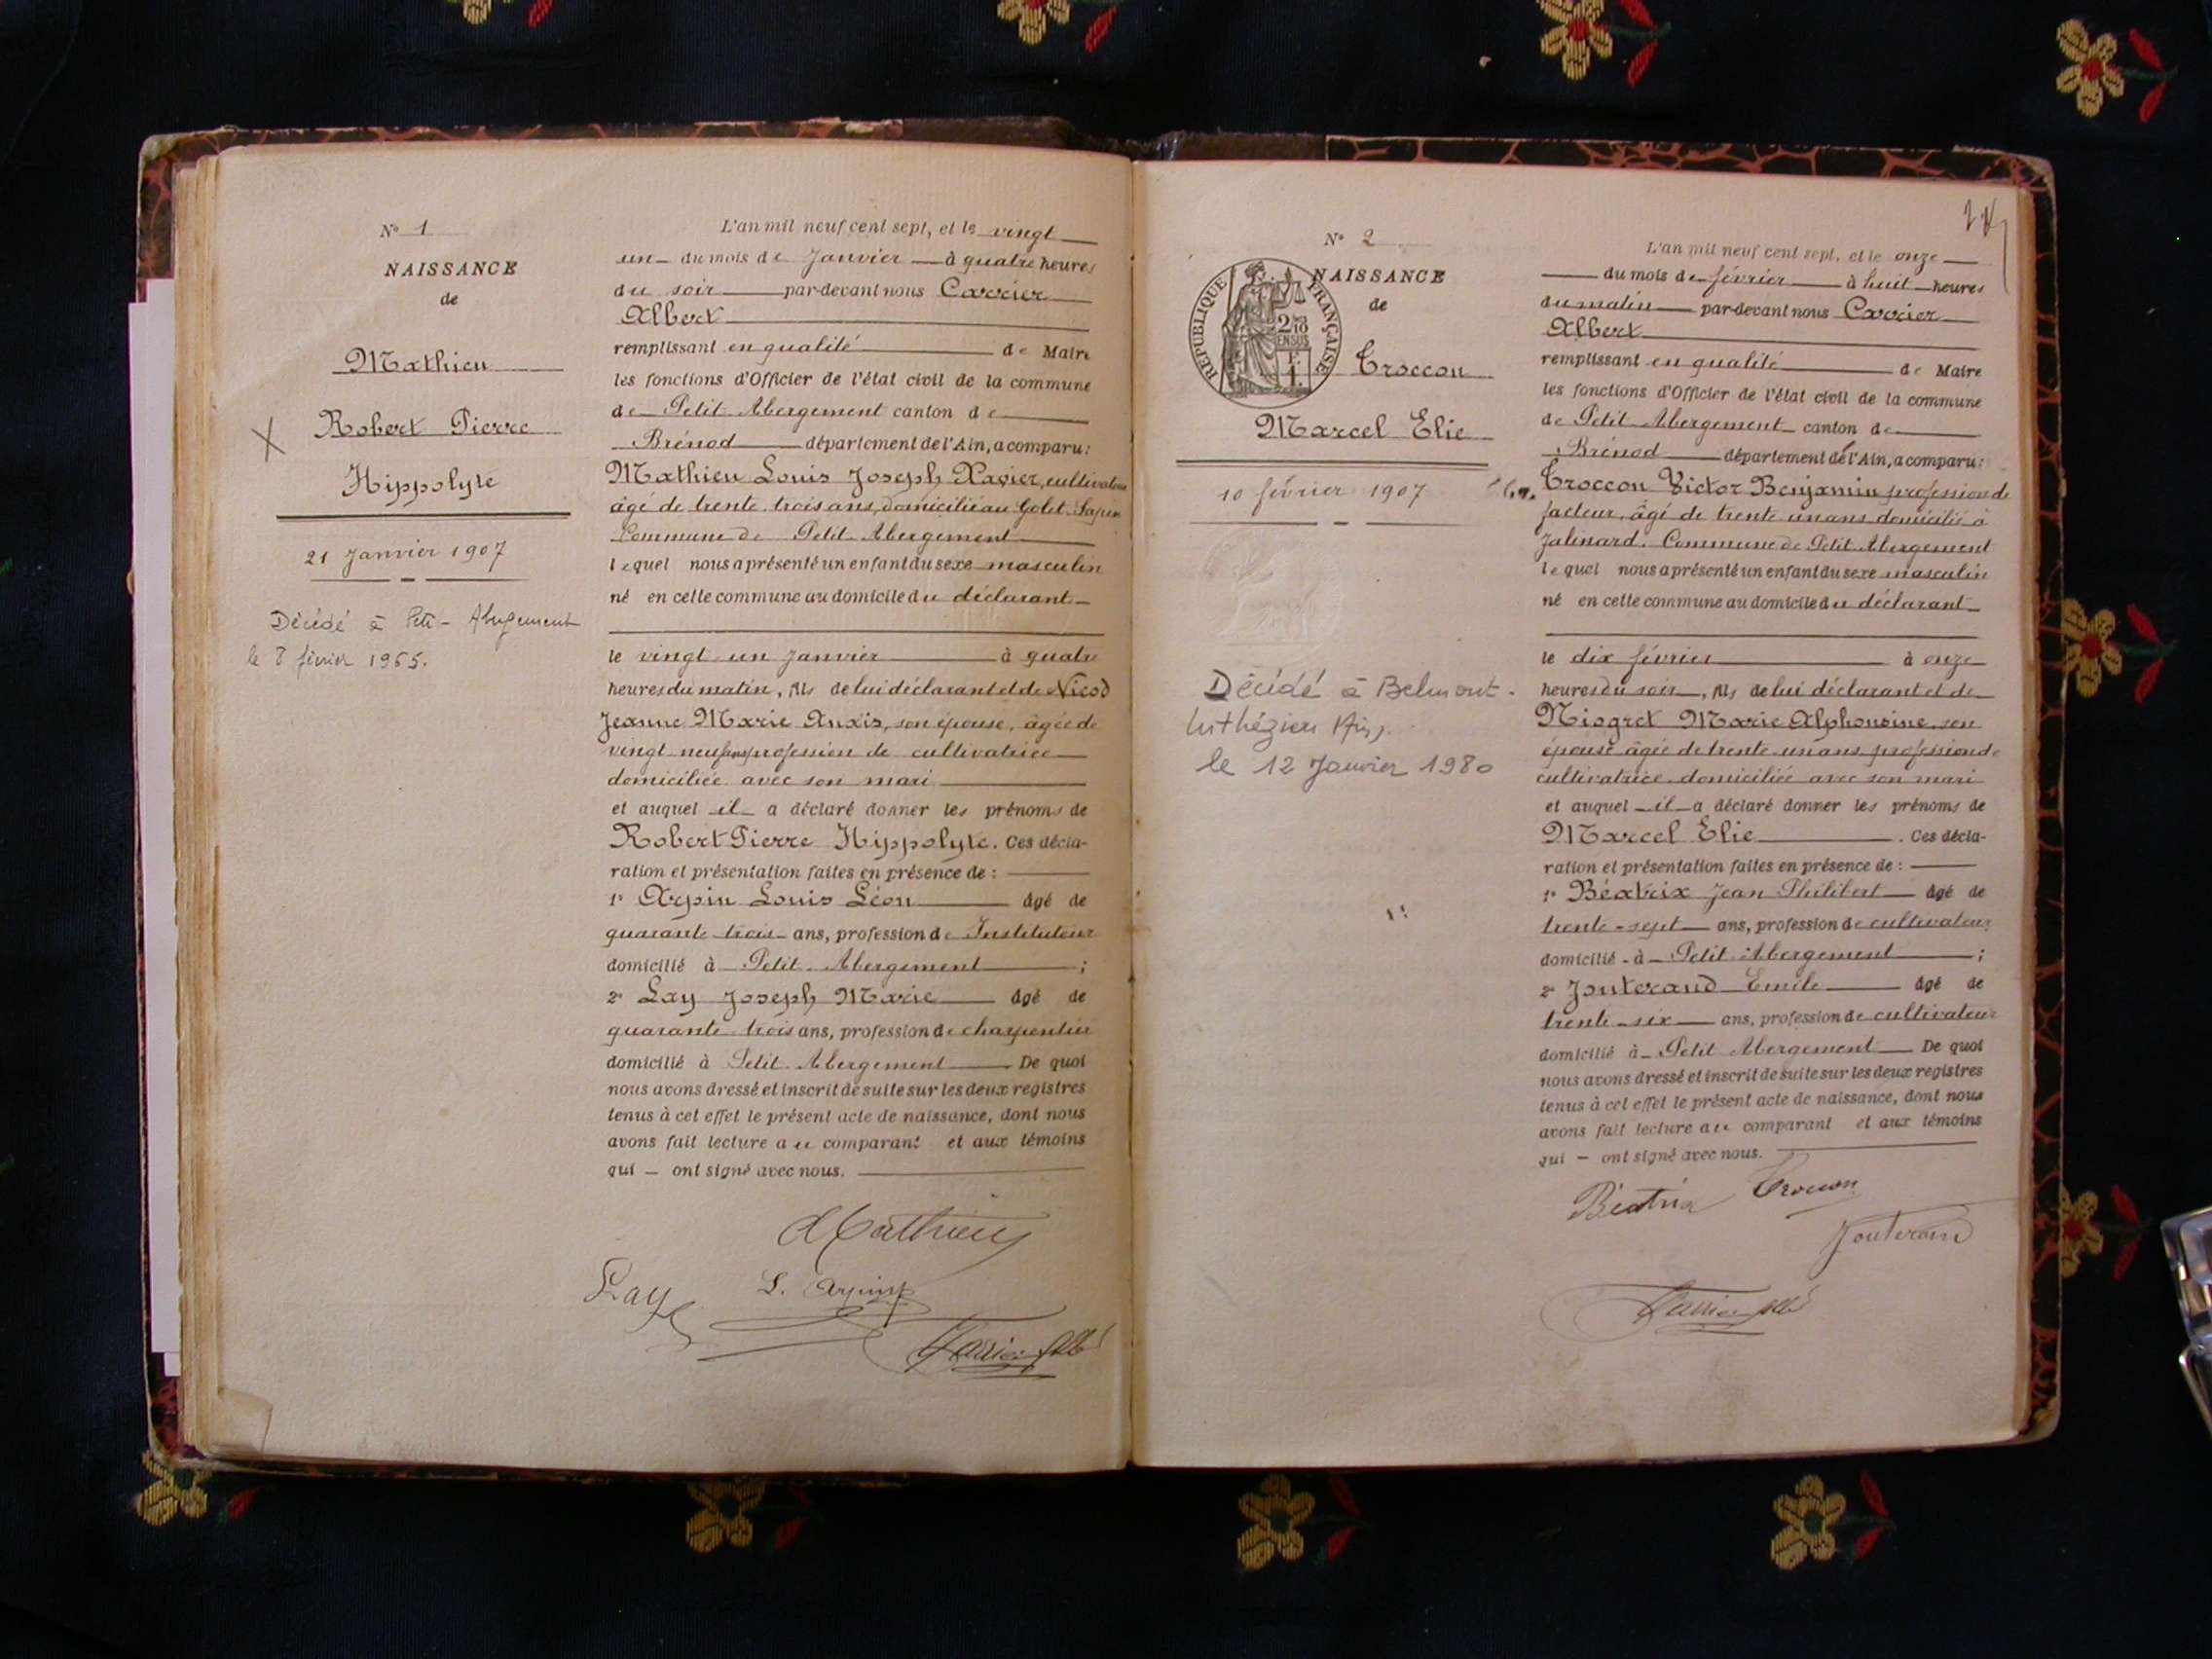 N° 1
NAISSANCE
de
Mathieu
Robert Pierre
Hippolyte
21 Janvier 1907
Décédé à Petit-Abergement
le 8 février 1965.
L'an mil neuf cent sept, et le vingt
un du mois de Janvier à quatre heures
du soir par-devant nous Carrier
Albert
remplissant en qualité de Maire
les fonctions d'Officier de l'état civil de la commune
de Petit Abergement canton de
Brénod département de l'Ain, a comparu:
Mathieu Louis Joseph Xavier, cultivateur
âgé de trente trois ans, domicilié au Golet Sapin
Commune de Petit Abergement
lequel nous a présenté un enfant du sexe masculin
né en cette commune au domicile du déclarant
le vingt un Janvier à quatre
heures du matin, fils de lui déclarant et de Nicod
Jeanne Marie Anaïs, son épouse, âgée de
vingt neuf ans profession de cultivatrice
domiciliée avec son mari
et auquel il a déclaré donner les prénoms de
Robert Pierre Hippolyte. Ces décla-
ration et présentation faites en présence de :
1° Arpin Louis Léon âgé de
quarante trois ans, profession de Instituteur
domicilié à Petit Abergement ;
2° Lay Joseph Marie âgé de
quarante trois ans, profession de charpentier
domicilié à Petit Abergement De quoi
nous avons dressé et inscrit de suite sur les deux registres
tenus à cet effet le présent acte de naissance, dont nous
avons fait lecture au comparant et aux témoins
qui — ont signé avec nous.
Mathieu
Lay L. Arpin
Carrier Alb
N° 2
NAISSANCE
de
RÉPUBLIQUE FRANÇAISE
Troccon
Marcel Elie
10 février 1907
Décédé à Belmont-
Luthézieu (Ain)
le 12 Janvier 1980
L'an mil neuf cent sept, et le onze
du mois de février à huit heures
du matin par-devant nous Carrier
Albert
remplissant en qualité de Maire
les fonctions d'Officier de l'état civil de la commune
de Petit Abergement canton de
Brénod département de l'Ain, a comparu:
Troccon Victor Benjamin profession de
facteur, âgé de trente un ans domicilié à
Jalinard. Commune de Petit Abergement
lequel nous a présenté un enfant du sexe masculin
né en cette commune au domicile du déclarant
le dix février à onze
heures du soir, fils de lui déclarant et de
Miogret Marie Alphonsine, son
épouse âgée de trente un ans profession de
cultivatrice domiciliée avec son mari
et auquel il a déclaré donner les prénoms de
Marcel Elie . Ces décla-
ration et présentation faites en présence de :
1° Béatrix Jean Philibert âgé de
trente-sept ans, profession de cultivateur
domicilié à Petit Abergement ;
2° Jouterand Emile âgé de
trente-six ans, profession de cultivateur
domicilié à Petit Abergement De quoi
nous avons dressé et inscrit de suite sur les deux registres
tenus à cet effet le présent acte de naissance, dont nous
avons fait lecture au comparant et aux témoins
qui — ont signé avec nous.
Béatrix Troccon
Jouterand
Carrier Alb